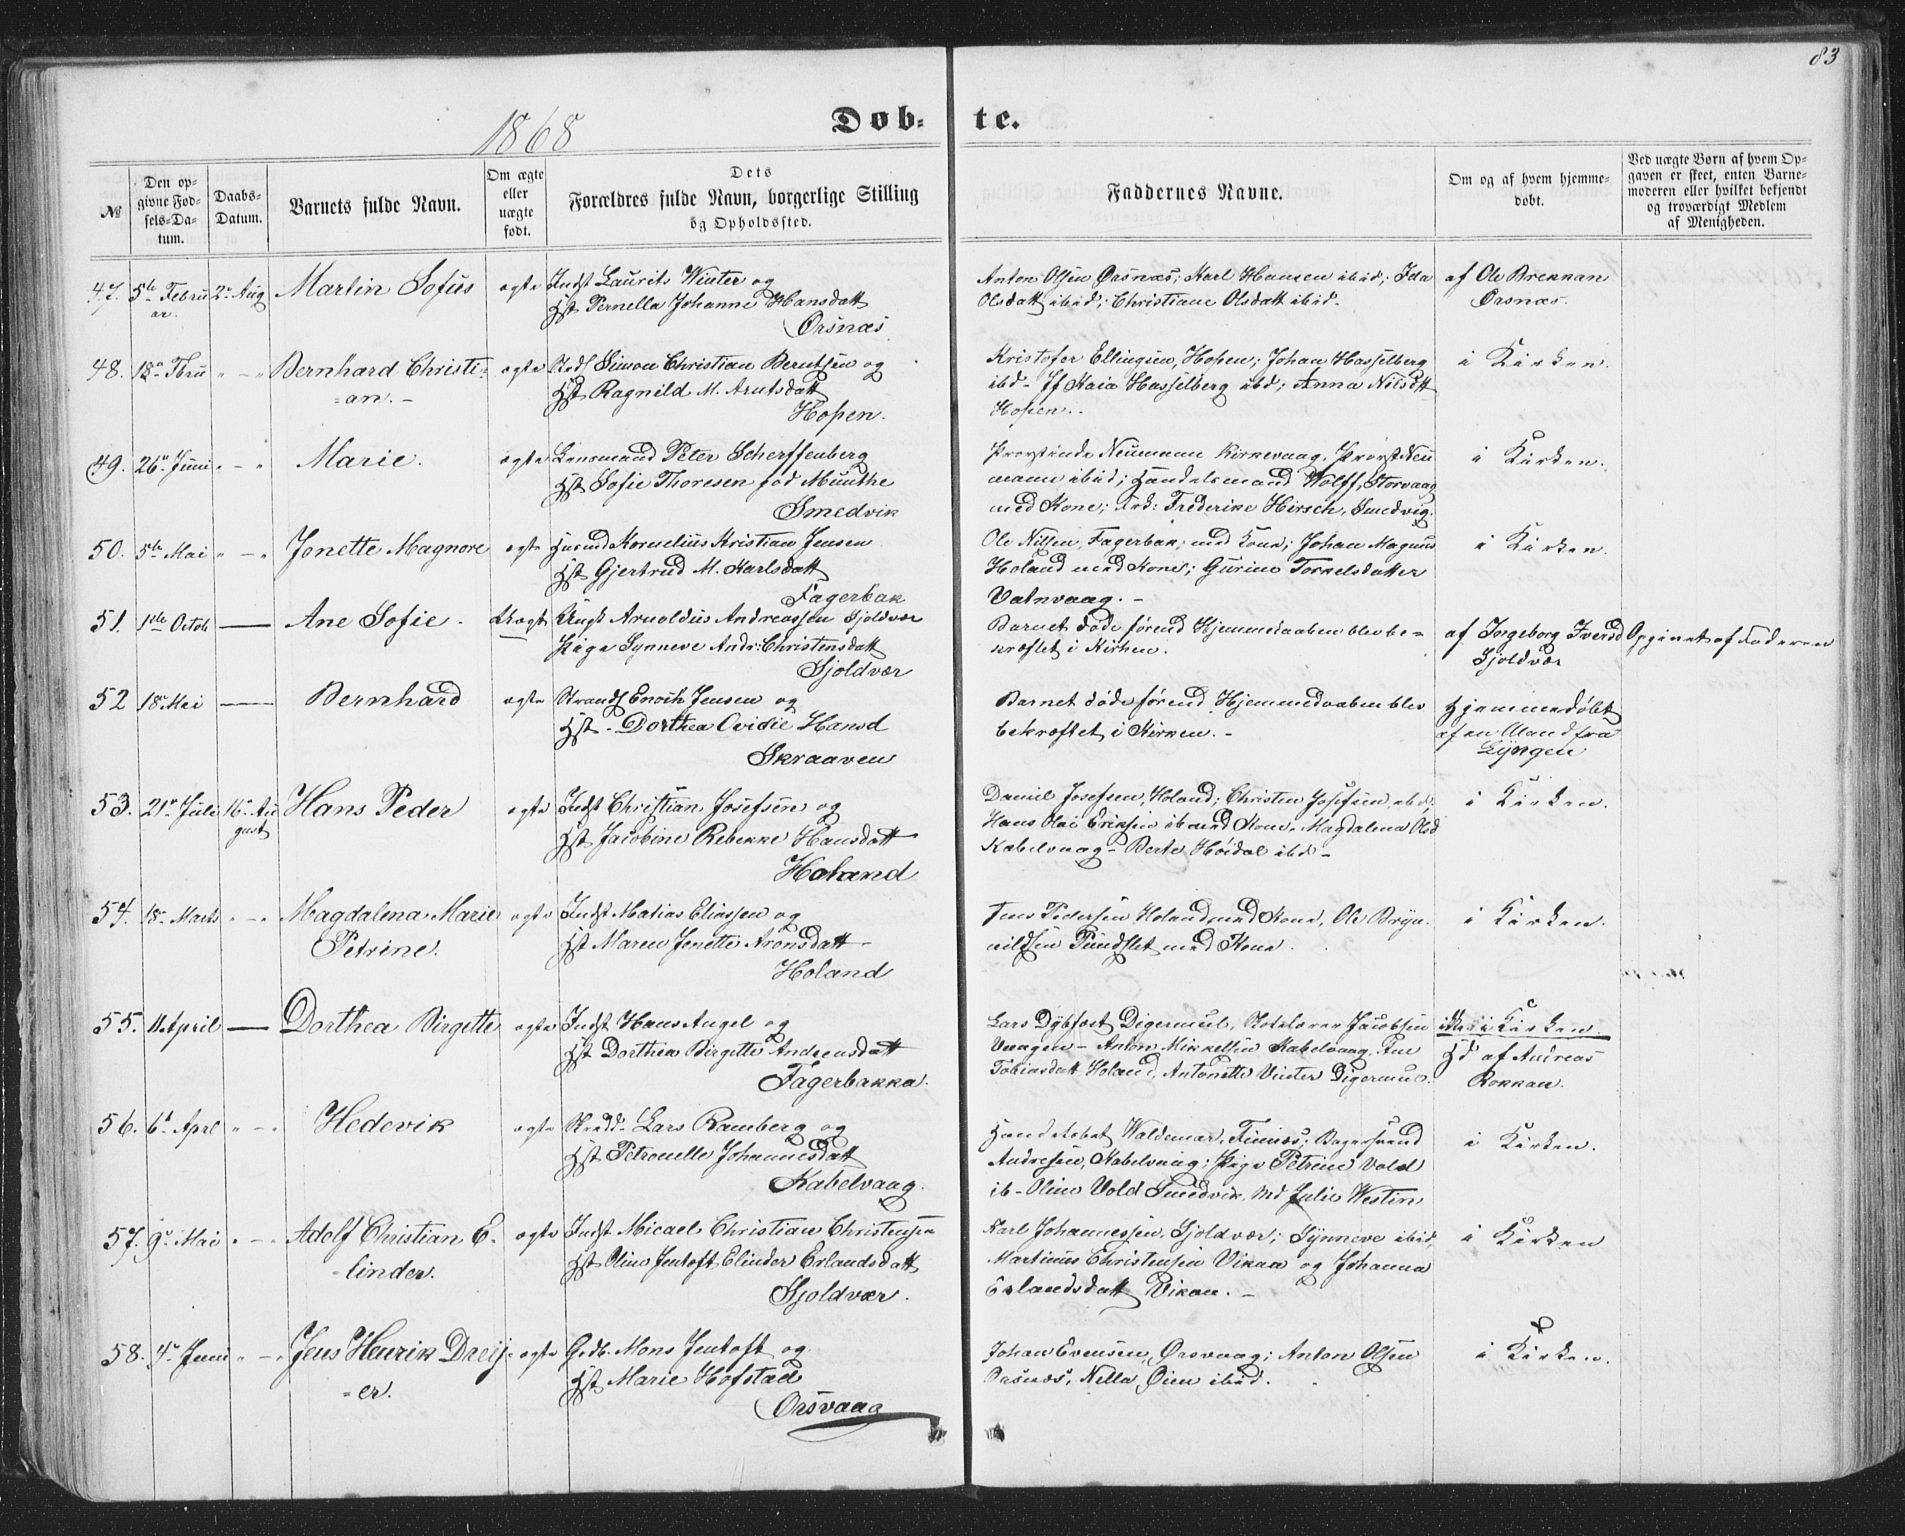 83
1868
Døb- te.
№
Den op-
givne Fød-
sels-Da-
tum.
Daabs-
Datum.
Barnets fulde Navn.
Om ægte
eller
uægte
født.
Dets
Forældres fulde Navn, borgerlige Stilling
og Opholdssted.
Faddernes Navne.
Om og af hvem hjemme-
døbt.
Ved uægte Børn af hvem Op-
gaven er skeet, enten Barne-
moderen eller hvilket bekjendt
og troværdigt Medlem
af Menigheden.
47. 5te Febru 2 Aug Martin Sofus ægte Indst Laurits Winter og
ar. Hst Pernella Johanne Hansdatt
Ørsnæs
Anton Olsen Ørsnæs; Karl Hansen ibid; Ida
Olsdatt ibid; Christiane Olsdatt ibid.
af Ole Brekkan
Ørsnæs.
48. 18 Fbru " - " Bernhard Christi- ægte Simon Christian Berntsen og
-an. - Hst Ragnild M. Arntsdatt
Hopen.
Kristofer Ellingsen, Hopen; Johan Hasselberg
ibd - Kaia Hasselberg ibd; Anna Nilsdtt
Hopen.
i Kirken.
49. 26 Juni " - " Marie. ægte Lensmand Peter Scherffenberg
Hst Sofie Thoresen fød Munthe
Smedvik
Provstinde Neumann Kirkevaag, Provst Neu
mann ibid; Handelsmand Wolff, Storvaag
med Kone; Frederike Hirsch, Smedvig.
i Kirken.
50. 5te Mai " - " Jonette Magnore ægte Husmd Kornelius Kristian Jensen
Hst Gjertrud M. Karlsdatt
Fagerbak
Ole Nilsen, Fagerbak; med Kone; Johan Magnus
Holand med Kone; Gurine Torkelsdatter
Vatnvaag. -
i Kirken.
51. 1ste Octob — Ane Sofie. Uægt Ungk Arnoldus Andreassen Sjoldvær
Pige Synneve Andr: Christensdatt
Sjoldvær
Barnet døde førend Hjemmedaaben blev be-
kræftet i Kirken.
af Ingeborg Iversd
Sjoldvær
Opgivet af Faderen
52 18 Mai — Bernhard ægte Strands Enoch Jensen og
Hst - Dorthea Ovidie Hansd
Skraaven
Barnet døde førend Hjemmedaaben blev
bekræftet i Kirken. -
Hjemmedøbt
af en Mand fra
Lyngen
53. 21 Juli 16 Au Hans Peder ægte Indst Christian Josefsen og
gust Hst Jacobine Rebekke Hansdatt
Holand
Daniel Josefsen, Holand; Christen Josefsen, ibd;
Hans Olai Eriksen ib med Kone, Magdalena Olsd
Kabelvaag - Berte Høidal ibd -
i Kirken.
54. 18 Marts " - " Magdalena Marie ægte Indst Matias Eliassen og
Petrine. Hst Maren Jonette Aronsdatt -
Holand
Jens Pedersen Holand med Kone, Ole Bryn
nildsen med Kone.
i Kirken.
55. 11 April — Dorthea Birgette ægte Indst Hans Angel og
Hst Dorthea Birgitte Andreasdatt
Fagerbakka.
Lars Dybfest Digermul, Jacobsen
Vaagen - Anton Mikkelsen Kabelvaag, Ane
Tobiasdatt Holand, Antonette Vinter Digermul.
ikke i Kirken.
Hd af Andreas
Rokkan.
56. 6 Aprl " - " Hedevik ægte Lars Ramberg og
Hst Petronelle Johannesdatt
Kabelvaag.
Waldemar, Finnæs; Bagersvend
Andresen, Kabelvaag; Pige Petrine Vold
ib - Oline Vold Smedvik, Md Julie Westin
i Kirken.
57. 9 Mai " - " Adolf Christian E- ægte Indst Micael Christian Christensen
-linder. Hst Oline Jentoft Elinder Erlandsdatt
Sjoldvær.
Karl Johannessen, Sjoldvær; Synneve ibid,
Martinus Christensen Vikan og Johanna
Erlandsdatt Vikan. -
i Kirken
58. 4 Juni " - " Jens Henrik Dreij- ægte Grdb. Mons Jentoft og
-er. Hst Marie Hofstad
Ørsvaag
Johan Evensen, Ørsvaag; Anton Olsen
Ørsnæs, Nella Øien ibid.
i Kirken.